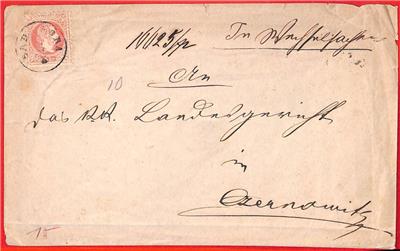 In Wechselsachen
An
das k.k. Landesgericht
in
Czernowitz
10
15